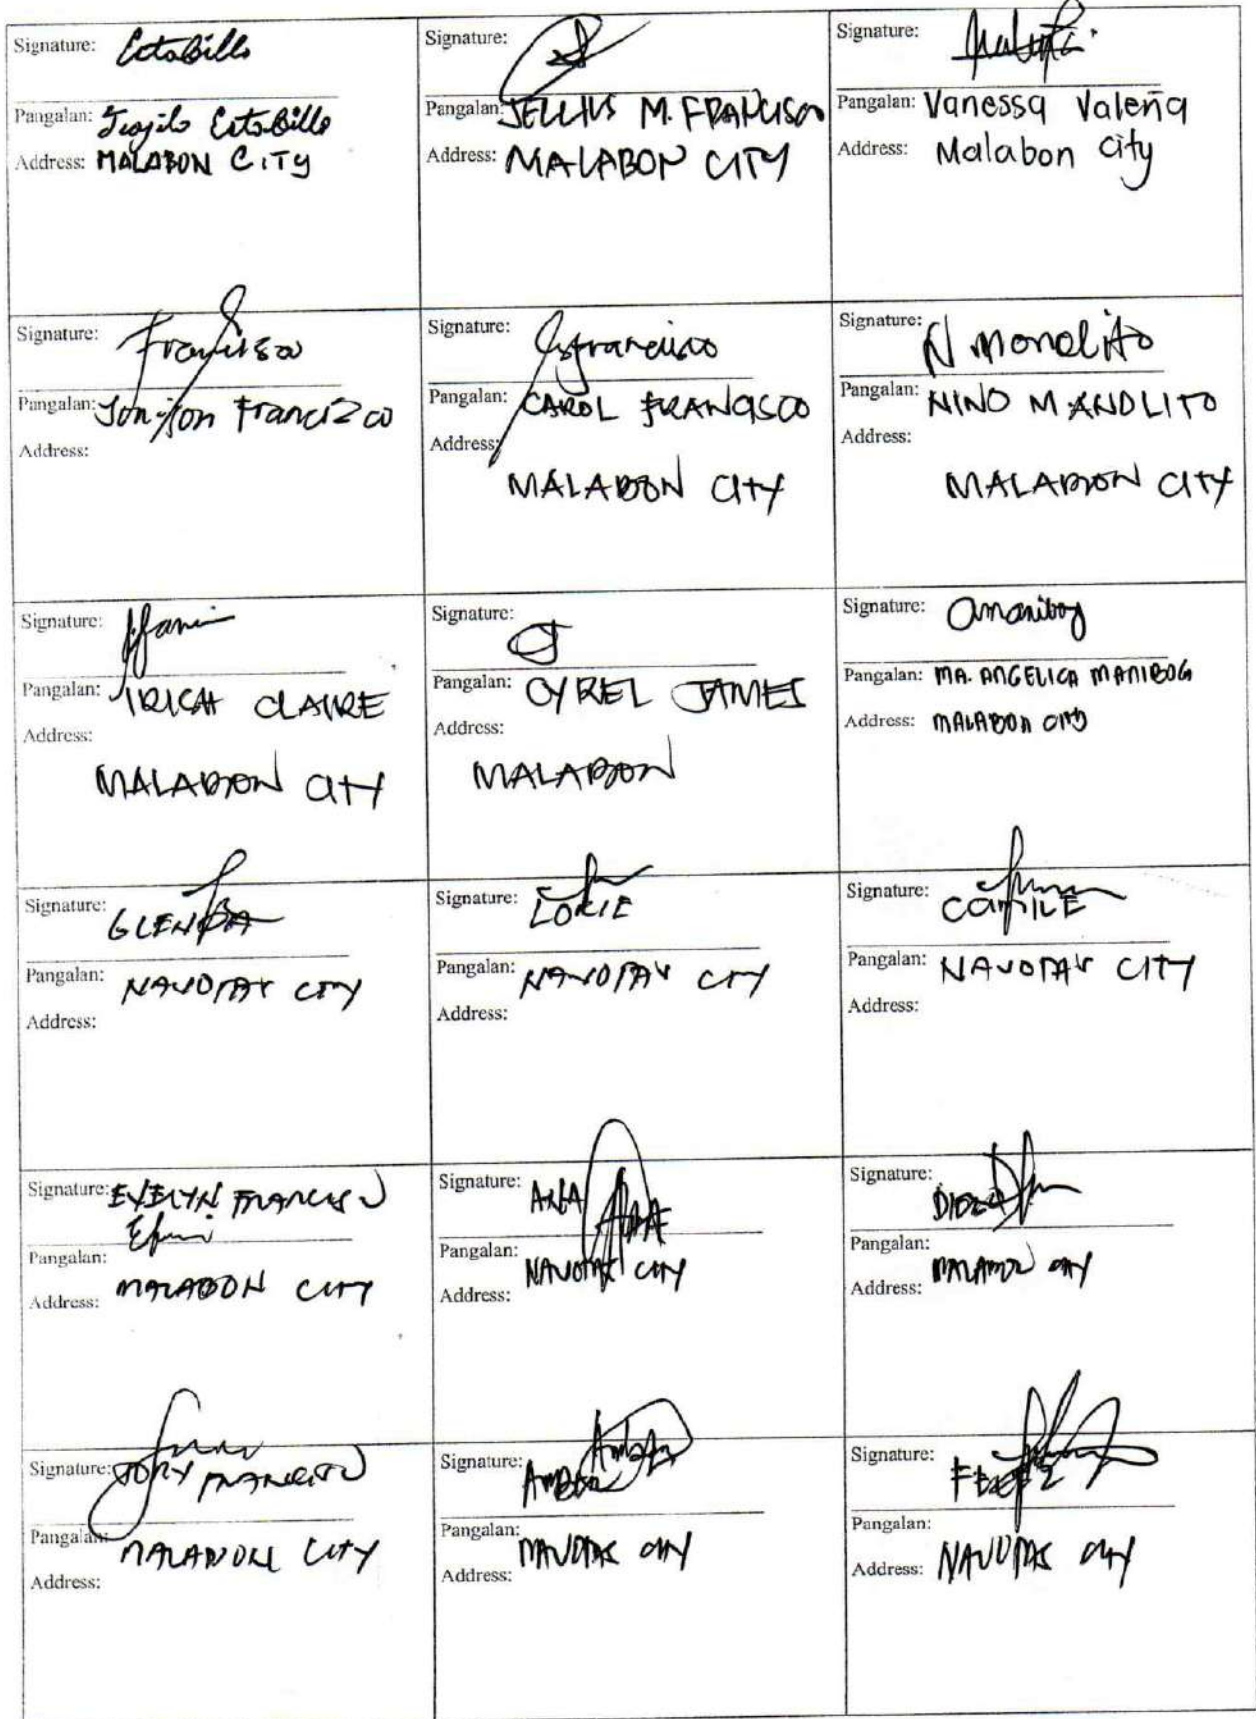 Signature: Estabillo
Pangalan: Estabillo
Address: MALABON CITY
Signature:
Pangalan: JELLIUS M. FRANCISCO
Address: MALABON CITY
Signature:
Pangalan: Vanessa Valeña
Address: Malabon City
Signature: Francisco
Pangalan: Francizco
Address:
Signature: francisco
Pangalan: CAROL FRANCISCO
Address:
MALABON CITY
Signature: N Mandlito
Pangalan: NINO MANDLITO
Address:
MALABON CITY
Signature:
Pangalan: IRICH CLAIRE
Address:
MALABON CITY
Signature: CJ
Pangalan: CYREL JAMES
Address:
MALABON
Signature: amanibog
Pangalan: MA. ANGELICA MANIBOG
Address: MALABON CITY
Signature: GLENDA
Pangalan: NAVOTAS CITY
Address:
Signature: LORIE
Pangalan: NAVOTAS CITY
Address:
Signature: CAMILE
Pangalan: NAVOTAS CITY
Address:
Signature: EVELYN FRANCISCO
Pangalan:
Address: MALABON CITY
Signature: ANA
Pangalan:
NAVOTAS CITY
Address:
Signature: DIEGO
Pangalan:
MALABON CITY
Address:
Signature: JORY FRANCISCO
Pangalan:
MALABON CITY
Address:
Signature: AMBER
Pangalan:
NAVOTAS CITY
Address:
Signature:
Pangalan:
Address: NAVOTAS CITY